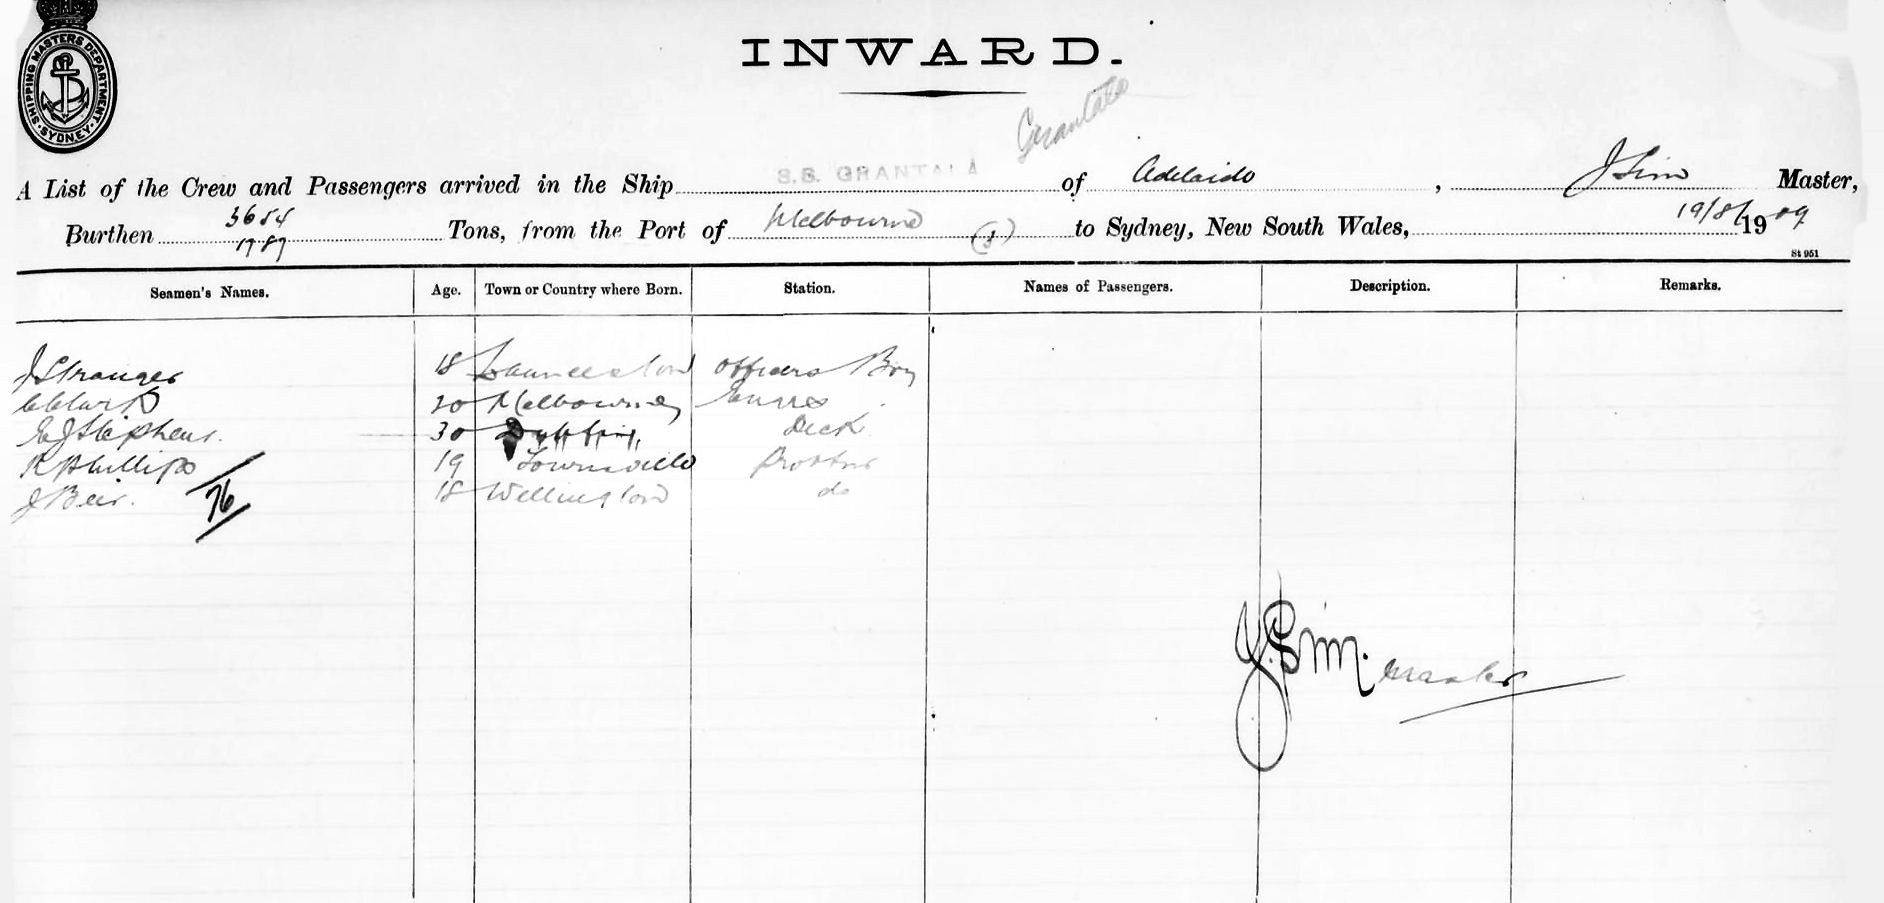 SHIPPING MASTERS DEPARTMENT. SYDNEY.
INWARD.
Grantala
A List of the Crew and Passengers arrived in the Ship S.S. GRANTALA of Adelaide, J Sim Master,
Burthen 3654 1787 Tons, from the Port of Melbourne to Sydney, New South Wales, 19/8/1909
St 951
Seamen's Names. Age. Town or Country where Born. Station. Names of Passengers. Description. Remarks.
J Stranger 18 Launceston Officers Boy
C Clark 20 Melbourne
E J Stephens. 30 Deck
R Phillips 19 Townsville
J Beir. 18 Wellington do
76
J. Sim. Master